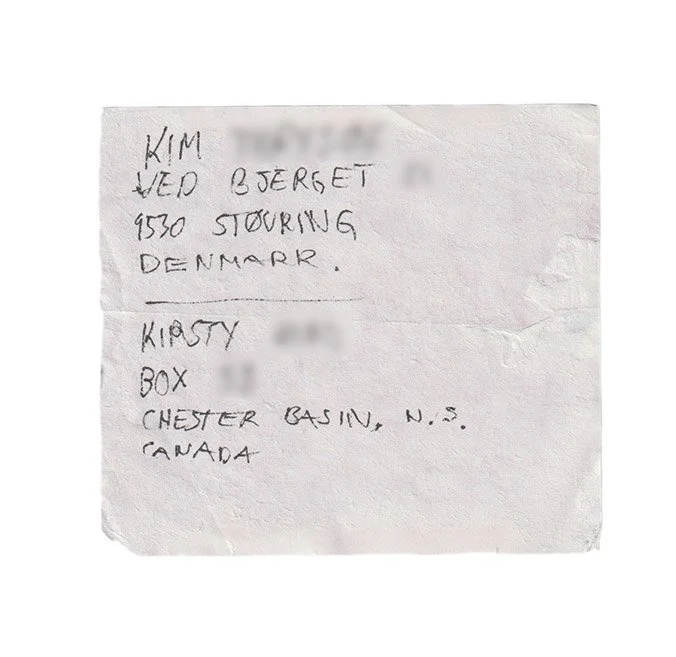 KIM
VED BJERGET
9530 STØVRING
DENMARK.
KIRSTY
BOX
CHESTER BASIN, N.S.
CANADA